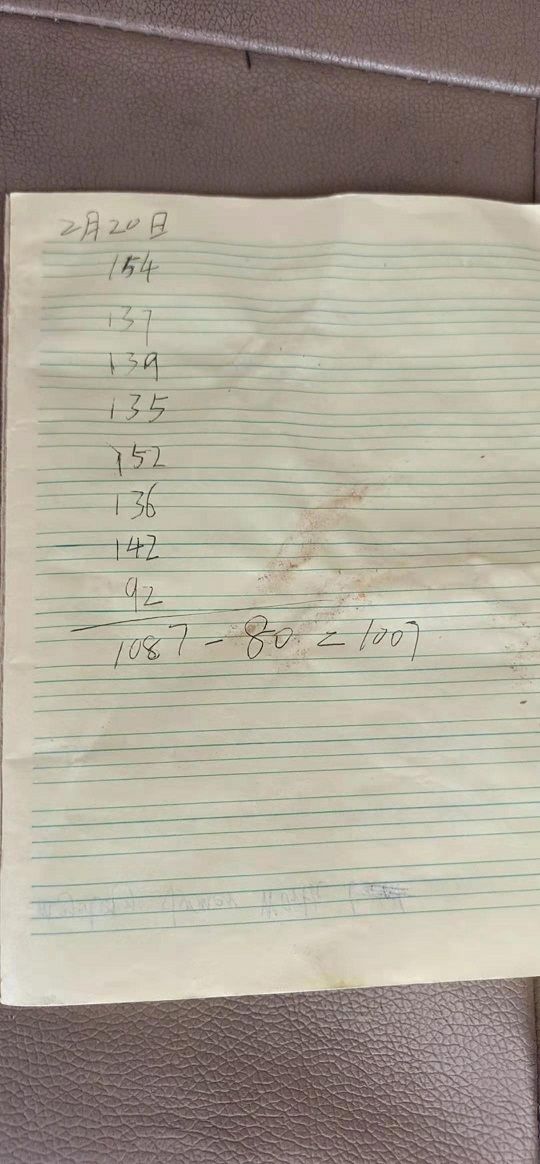 2月20日
154
137
139
135
152
136
142
92
1087 - 80 = 1007